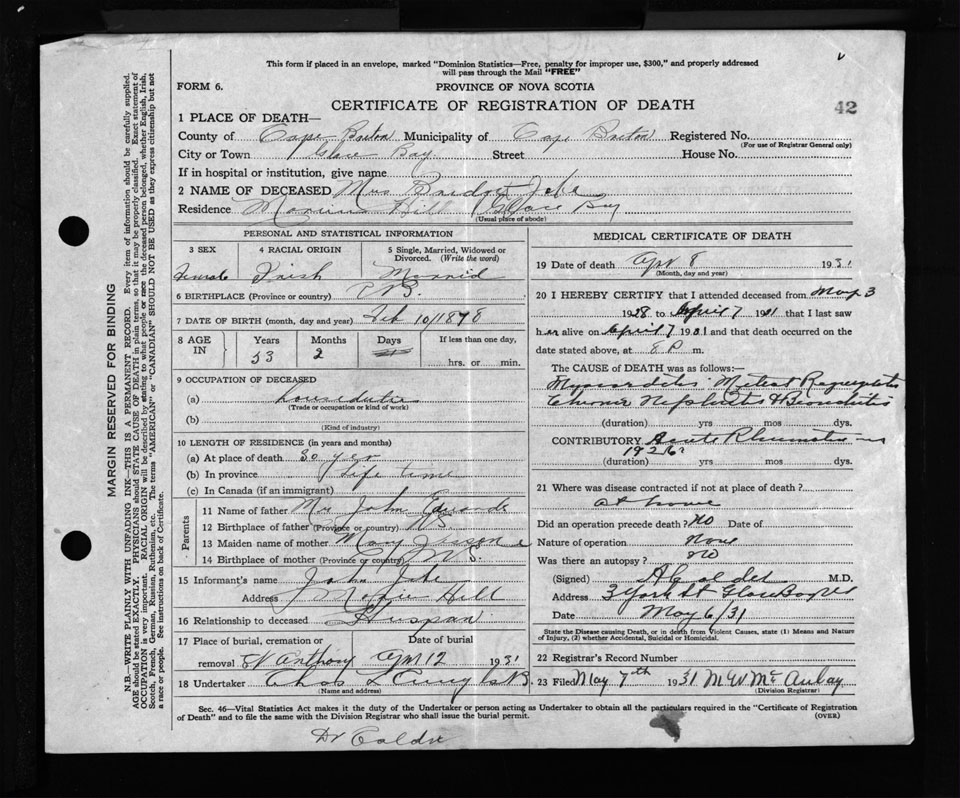 This form if placed in an envelope, marked "Dominion Statistics—Free, penalty for improper use, $300," and properly addressed
will pass through the Mail "FREE"
FORM 6. PROVINCE OF NOVA SCOTIA
CERTIFICATE OF REGISTRATION OF DEATH 42
1 PLACE OF DEATH—
County of Cape Breton Municipality of Cape Breton Registered No.
(For use of Registrar General only)
City or Town Glace Bay Street House No.
If in hospital or institution, give name
2 NAME OF DECEASED Mrs Bridget
Residence Hill Glace Bay
(Usual place of abode)
PERSONAL AND STATISTICAL INFORMATION
3 SEX 4 RACIAL ORIGIN 5 Single, Married, Widowed or
Divorced. (Write the word)
Female Irish Married
6 BIRTHPLACE (Province or country) N.S.
7 DATE OF BIRTH (month, day and year) Feb 10/1878
8 AGE IN Years Months Days If less than one day,
53 2
hrs. or min.
9 OCCUPATION OF DECEASED
(a) house duties
(Trade or occupation or kind of work)
(b)
(Kind of industry)
10 LENGTH OF RESIDENCE (in years and months)
(a) At place of death 30 yer
(b) In province Life time
(c) In Canada (if an immigrant)
Parents
11 Name of father Mr John
12 Birthplace of father (Province or country) N.S.
13 Maiden name of mother Mary
14 Birthplace of mother (Province or country) N.S.
15 Informant's name John
Address Hill
16 Relationship to deceased Huspan
17 Place of burial, cremation or Date of burial
removal St Anthony Apr 12 1931
18 Undertaker Chas
(Name and address)
MEDICAL CERTIFICATE OF DEATH
19 Date of death Apr 8 1931
(Month, day and year)
20 I HEREBY CERTIFY that I attended deceased from May 3
1928 to April 7 1931 that I last saw
her alive on April 7 1931 and that death occurred on
date stated above, at 8 P m.
The CAUSE OF DEATH was as follows:—
Myocarditis Mitral
Chronic Nephritis & Bronchitis
(duration) yrs mos dys.
CONTRIBUTORY Acute Rheumatism
1926
(duration) yrs mos dys.
21 Where was disease contracted if not at place of death?
at home
Did an operation precede death? No Date of
Nature of operation None
Was there an autopsy? No
(Signed) A Calder M.D.
Address 3 York St Glace Bay
Date May 6/31
State the Disease causing Death, or in death from Violent Causes, state (1) Means and Nature
of Injury, (2) whether Accidental, Suicidal or Homicidal.
22 Registrar's Record Number
23 Filed May 7th 1931 McAulay
(Division Registrar)
Sec. 46—Vital Statistics Act makes it the duty of the Undertaker or person acting as Undertaker to obtain all the particulars required in the "Certificate of Registration
of Death" and to file the same with the Division Registrar who shall issue the burial permit. (OVER)
Dr Calder
MARGIN RESERVED FOR BINDING
N.B.—WRITE PLAINLY WITH UNFADING INK—THIS IS A PERMANENT RECORD. Every item of information should be carefully supplied.
AGE should be stated EXACTLY. PHYSICIANS should STATE CAUSE OF DEATH in plain terms, so that it may be properly classified. Exact statement of
OCCUPATION is very important. RACIAL ORIGIN will be described by stating to what people or race the deceased person belonged, whether English, Irish,
Scotch, French, German, Russian, Ruthenian, etc. The terms "AMERICAN" or "CANADIAN" SHOULD NOT BE USED as they express citizenship but not
a race or people. See instructions on back of Certificate.